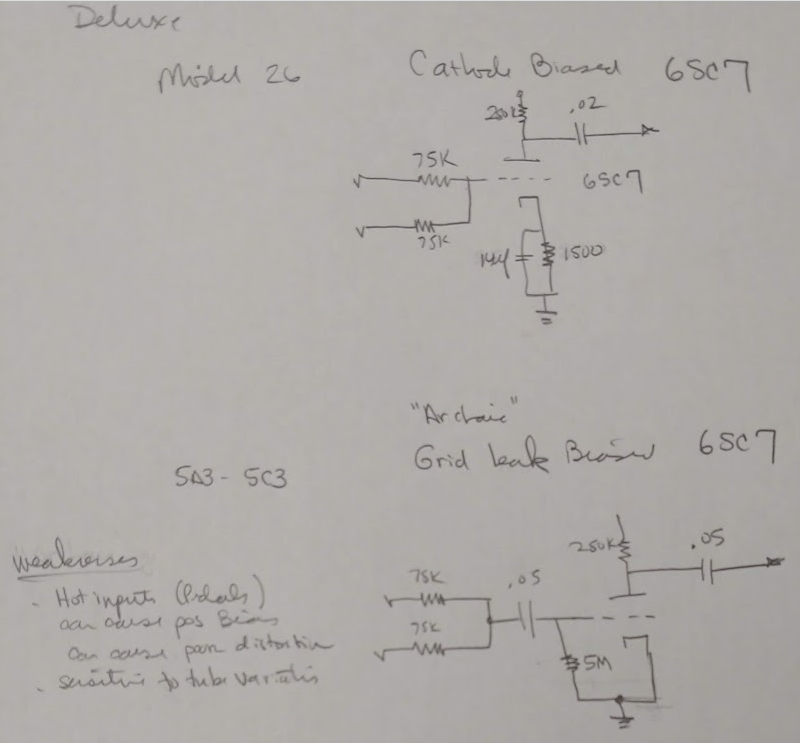 Deluxe
Model 26
Cathode Biased 6SC7
250K
.02
75K
6SC7
75K
1500
"Archaic"
Grid leak Biased 6SC7
5A3 - 5C3
250K
.05
weaknesses
75K
.05
. Hot inputs (Pedals)
75K
can cause pos Bias
can cause poor distortion
5M
. sensitive to tube variatins